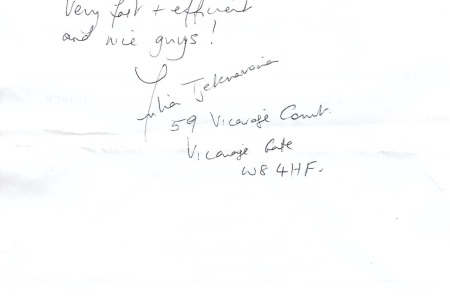 Very fast + efficient
and nice guys!
Julia
59 Vicarage Court
Vicarage Gate
W8 4HF.